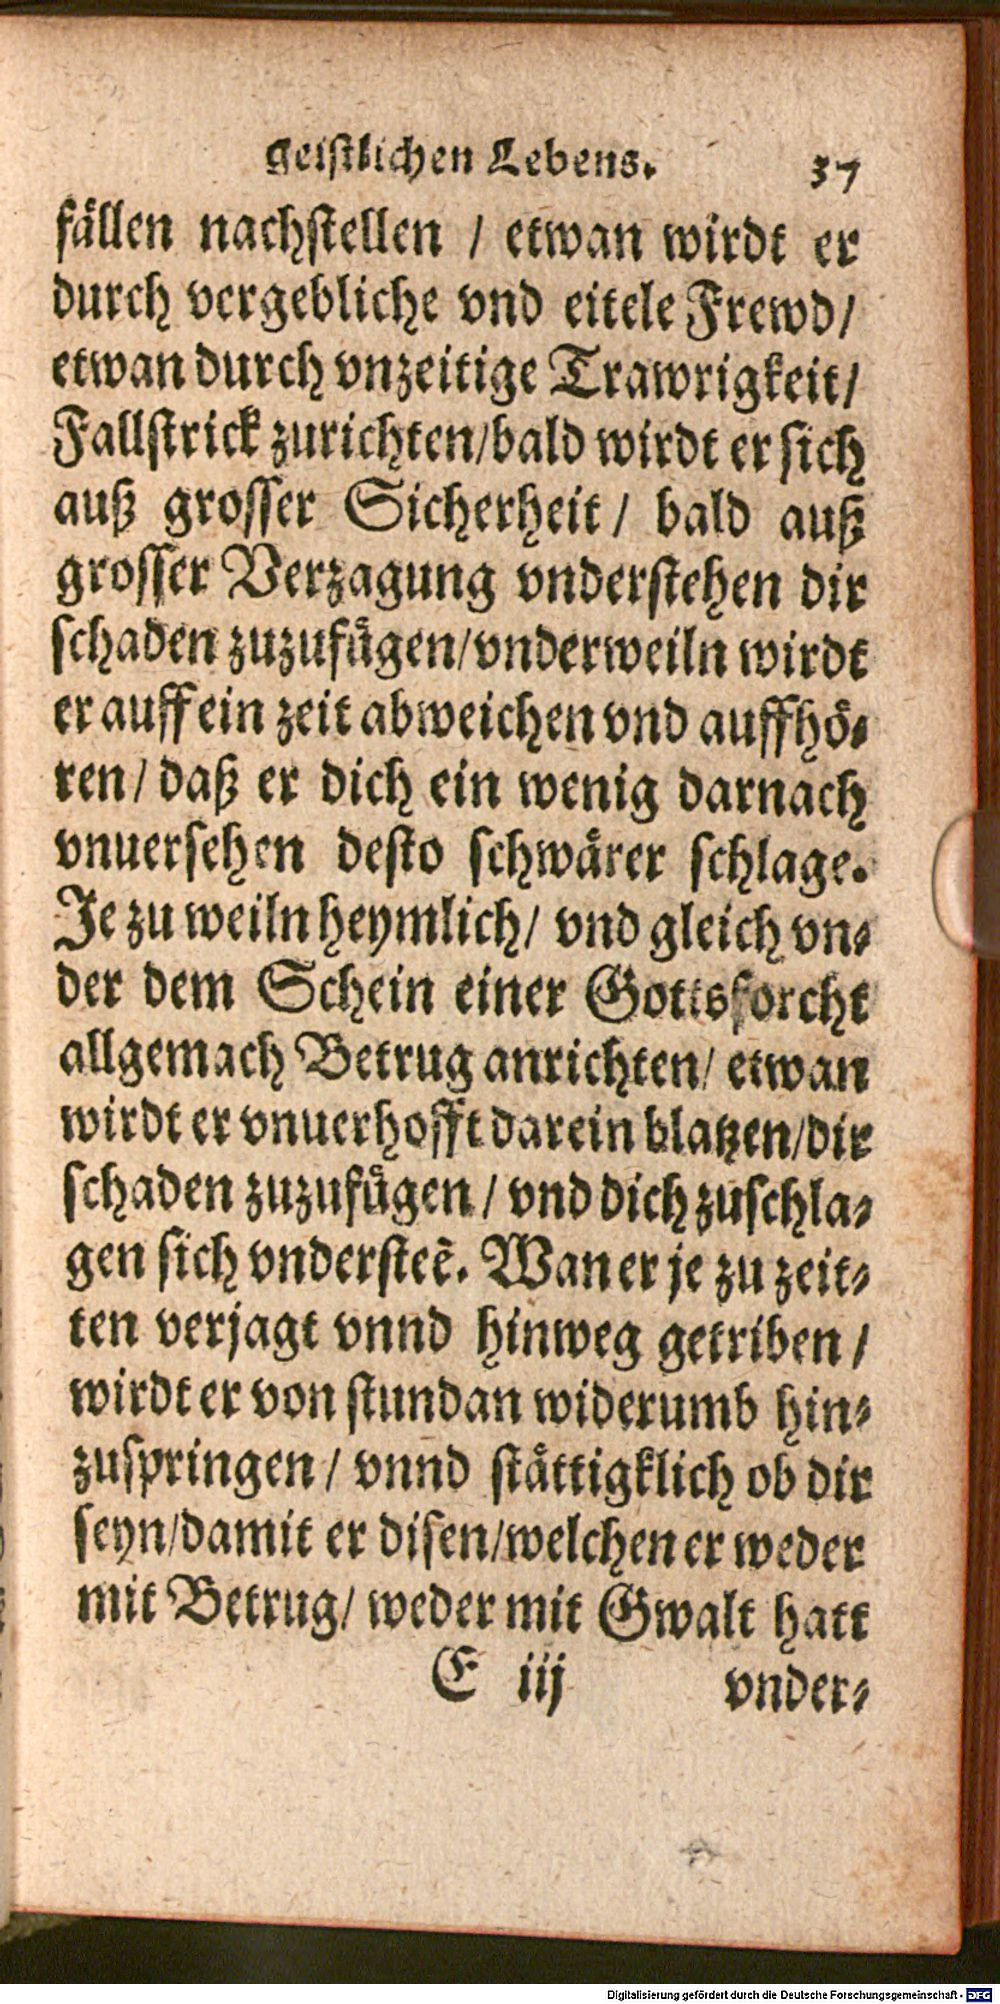 geistlichen Lebens. 37
fällen nachstellen / etwan wirdt er
durch vergebliche vnd eitele Frewd /
etwan durch vnzeitige Trawrigkeit /
Fallstrick zurichten / bald wirdt er sich
auß grosser Sicherheit / bald auß
grosser Verzagung vnderstehen dir
schaden zuzufügen / vnderweiln wirdt
er auff ein zeit abweichen vnd auffhö-
ren / daß er dich ein wenig darnach
vnuersehen desto schwärer schlage.
Je zu weiln heymlich / vnd gleich vn-
der dem Schein einer Gottsforcht
allgemach Betrug anrichten / etwan
wirdt er vnuerhofft darein blatzen / dir
schaden zuzufügen / vnd dich zuschla-
gen sich vnderstee͂. Wan er je zu zeit-
ten verjagt vnnd hinweg getriben /
wirdt er von stundan widerumb hin-
zuspringen / vnnd stättigklich ob dir
seyn / damit er disen / welchen er weder
mit Betrug / weder mit Gwalt hatt
E iij vnder-
Digitalisierung gefördert durch die Deutsche Forschungsgemeinschaft - DFG